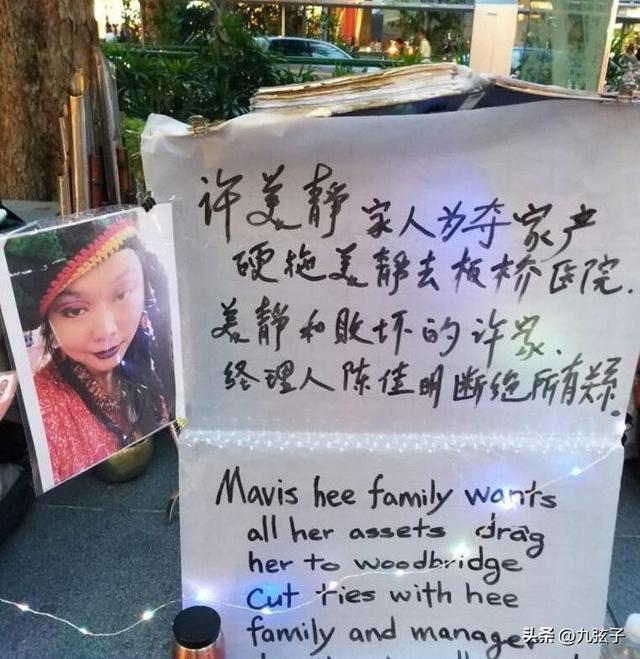 许美静家人为夺家产
硬拖美静去板桥医院.
美静和败坏的许家、
经理人陈佳明断绝所有关系.
Mavis hee family wants
all her assets drag
her to woodbridge
Cut ties with hee
family and manager
头条 @九弦子